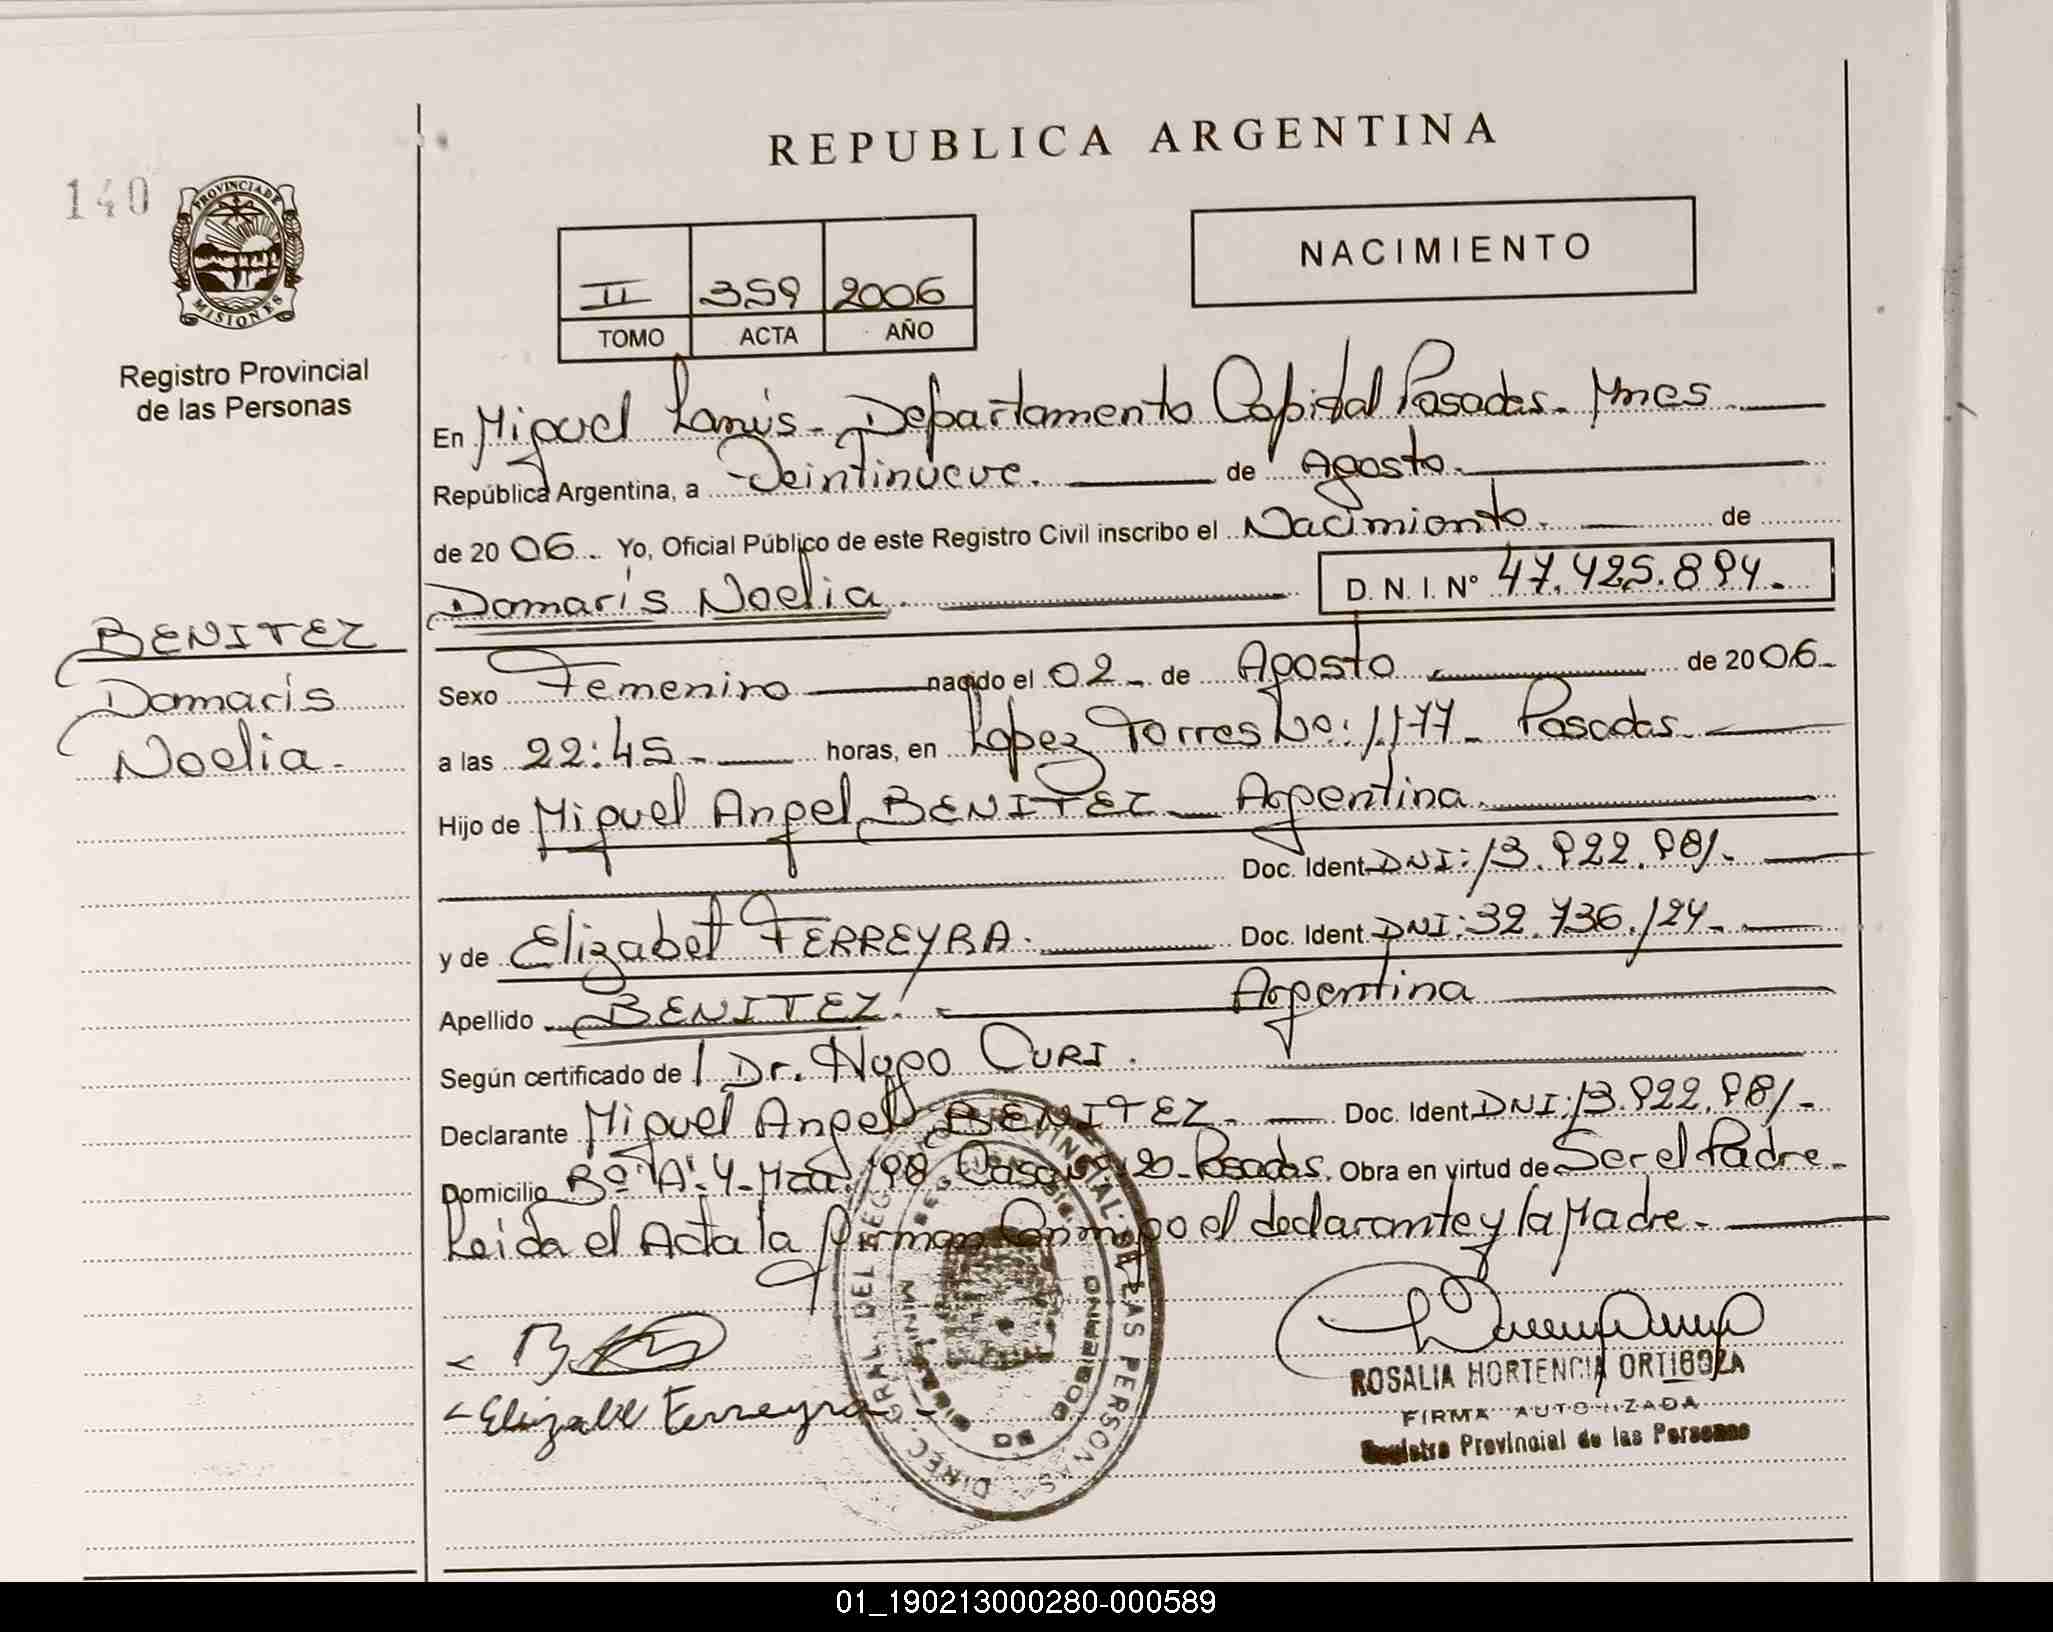 REPUBLICA ARGENTINA
140
PROVINCIA DE
MISIONES
Registro Provincial
de las Personas
NACIMIENTO
II 359 2006
TOMO ACTA AÑO
En Miguel Lanús - Departamento Capital Posadas - Mnes
República Argentina, a Veintinueve. de Agosto.
de 20 06. Yo, Oficial Público de este Registro Civil inscribo el Nacimiento. de
Damaris Noelia. D. N. I. Nº 47.425.894.
BENITEZ
Damaris
Noelia.
Sexo Femenino nacido el 02 de Agosto de 20 06.
a las 22:45 horas, en Lopez Torres No: 1177 - Posadas.
Hijo de Miguel Angel BENITEZ - Argentina.
Doc. Ident DNI: 13.922.981.
y de Elizabet FERREYRA. Doc. Ident. DNI: 32.736.124.
Apellido BENITEZ. Argentina
Según certificado de / Dr. Hugo CURI.
Declarante Miguel Angel BENITEZ. Doc. Ident DNI: 13.922.981.
Domicilio Bº "A". 4. Mza. 198 Casa 20 - Posadas. Obra en virtud de Ser el Padre.
Leida el Acta la firman Conmigo el declarante y la Madre.
Elizabet Ferreyra
DIREC. GRAL. DEL REG. PROVINCIAL DE LAS PERSONAS
ROSALIA HORTENCIA ORTIGOZA
FIRMA AUTORIZADA
Registro Provincial de las Personas
01_190213000280-000589